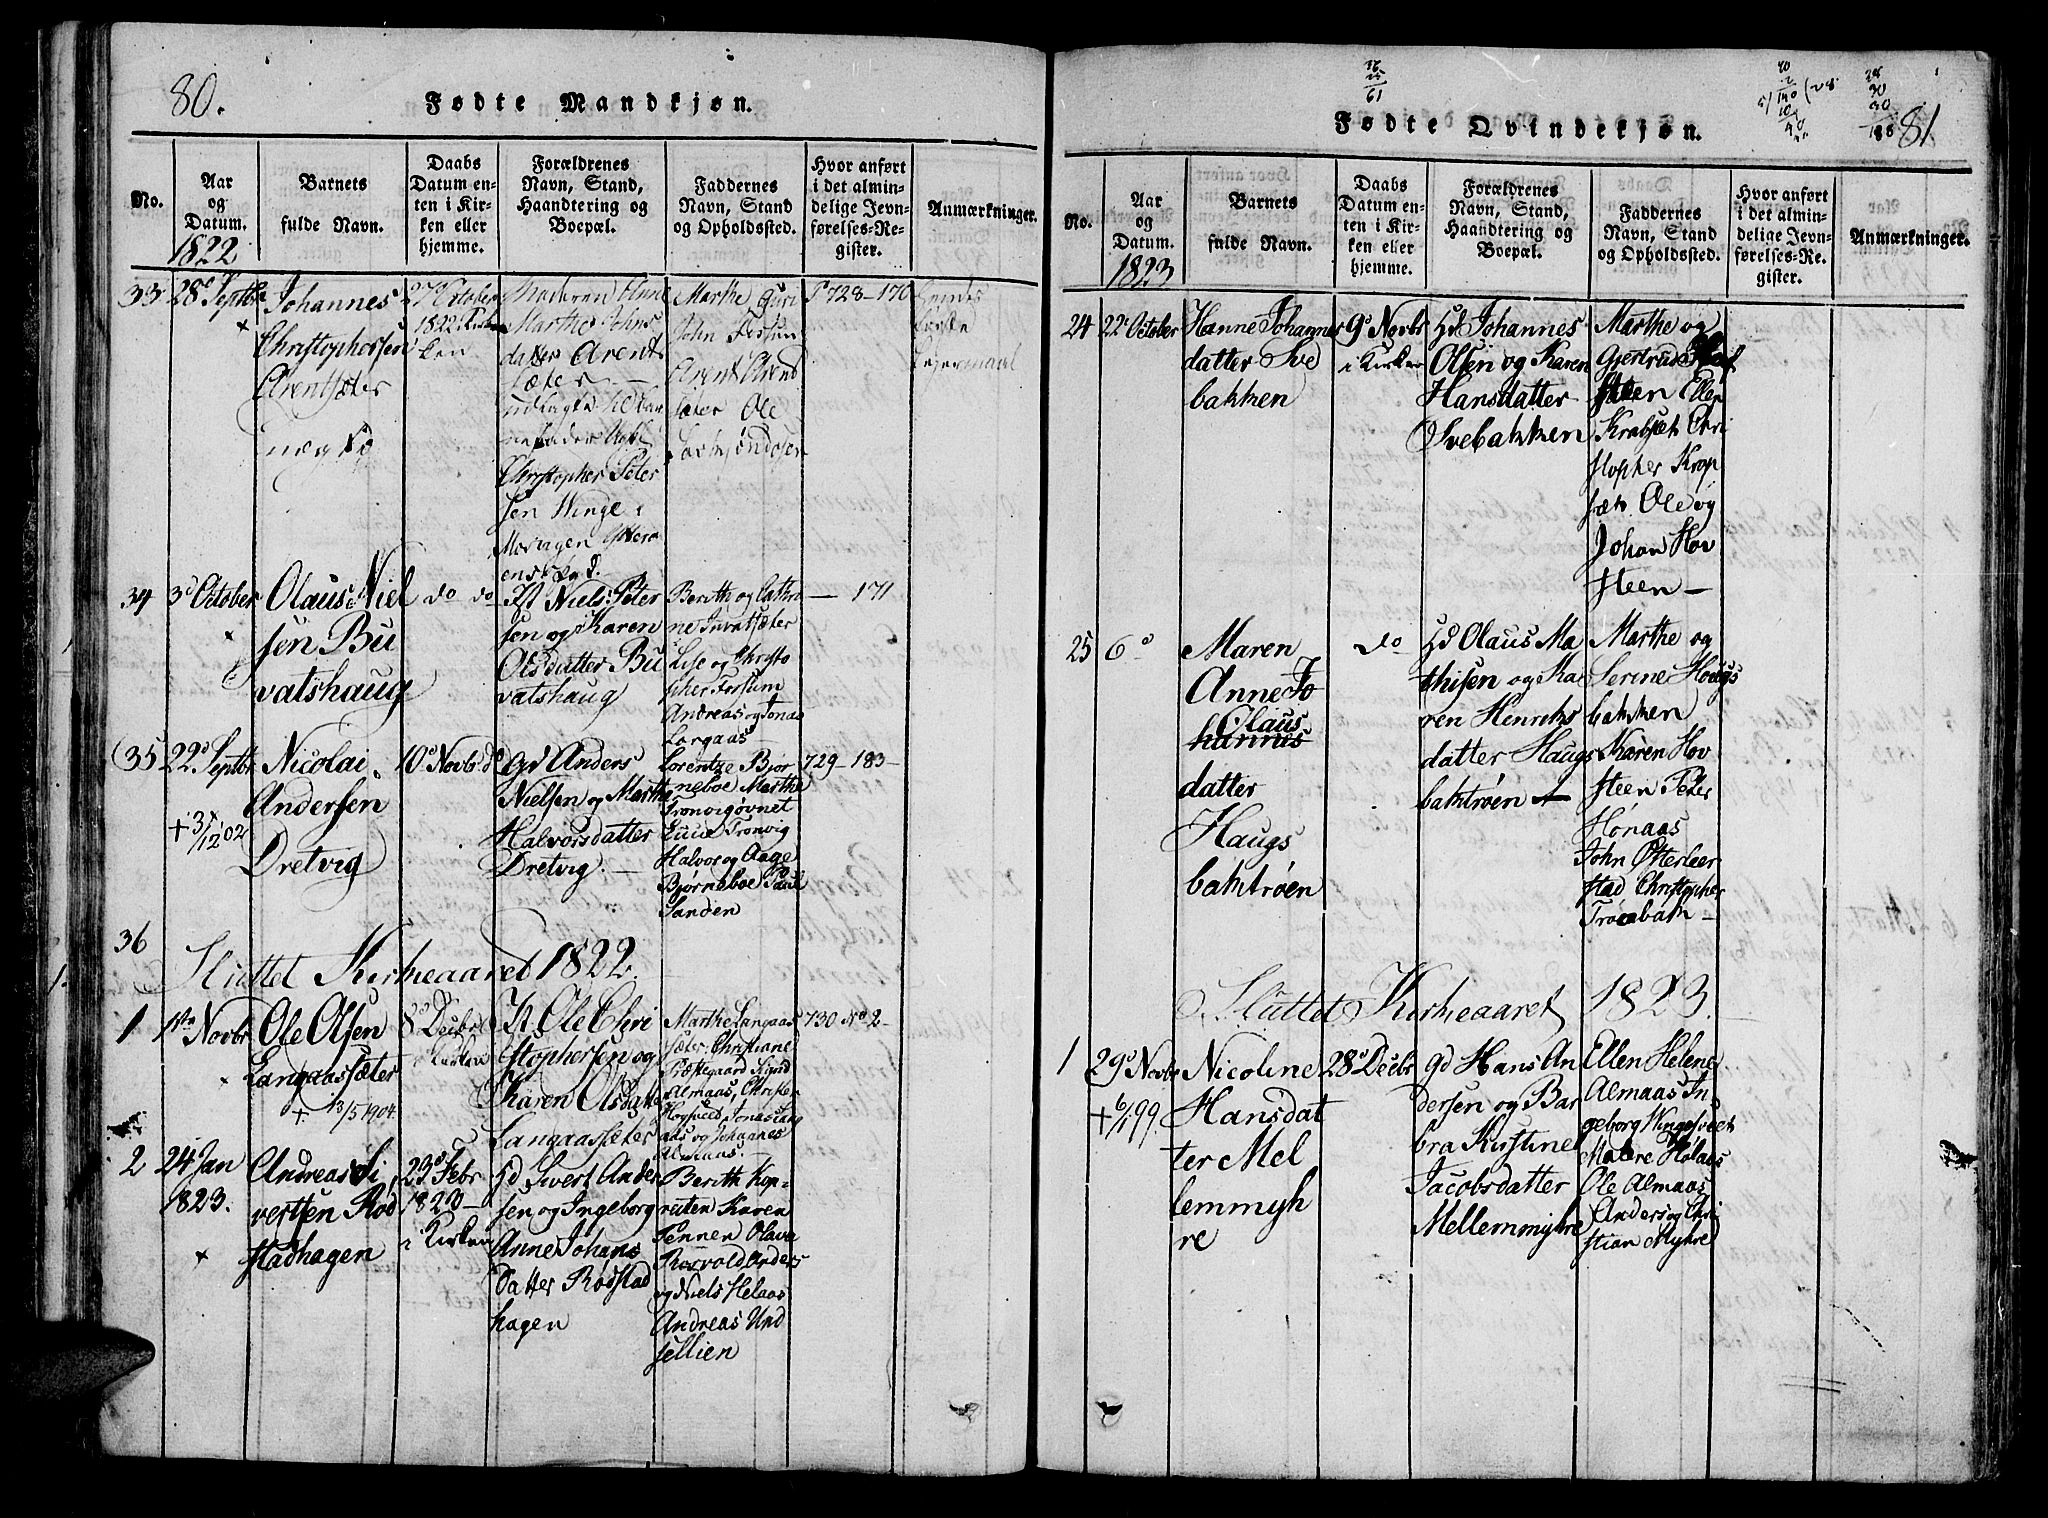 80.
Fødte Mandkjøn.
No.
Aar
og
Datum.
1822
Barnets
fulde Navn.
Daabs
Datum en-
ten i Kir-
ken eller
hjemme.
Forældrenes
Navn, Stand,
Haandtering og
Boepæl.
Faddernes
Navn, Stand
og Opholdssted.
Hvor anført
i det almin-
delige Jevn-
førelses-Re-
gister.
Anmærkninger.
33
28d Septbr
Johannes
Christophersen
Arentsæter
uægte
27d October
1822 i Kir
ken
Moderen Anne
Marthe Johns
datter Arent
sæter
udlagte til Bar
nefader Ugkl
Christopher Peter
sen Winge i
Marthe Guri
John Forsun
Arent Arend
sæter Ole
P 728 - 170
hendes
første
Leiermaal
34
3d October
Olaus Niel
sen Bu
vatshaug
do do
Niels Peter
sen og Karen
Olsdatter Bu
vatshaug
Berith og Cathri
ne Tuvatsæter
Lise og Christo
pher Forsum
Andreas og Jonas
Lorgaas
— 171
35
22d Septbr
+ 3/12 02
Nicolai
Andersen
Dretvig
10d Novbr do
Gd Anders
Nielsen og Marthe
Halvorsdatter
Dretvig.
Lorentze Bjør
neboe Marthe
Tronvigøvnet
Tronvig
Halvor og Aage
Bjørneboe Paul
Sanden
729 - 183
36
Sluttet Kirkeaaret 1822.
1
1ste Novbr
Ole Olsen
Langaassæter
+ 13/5 1904
8d Decbr
i Kirken
Ole Chri
stophersen og
Karen Olsdatter
Langaassæter
Marthe Langaas
sæter, Christiane
Almaas,
Jonas Lang
aas og Johannes
Almaas.
730 No 2
2
24 Jan
1823.
Andreas Si
vertsen Rød
stadhagen
23d Febr
1823
i Kirken
Hd Sivert Ander
sen og Ingeborg
Anne Johans
datter Rødstad
hagen
Berith Kop-
reiten Karen
Fenner Olava
Anders
og Niels Helaas
Andreas Und
sellien
81
Fødte Qvindekjøn.
No.
Aar
og
Datum.
1823
Barnets
fulde Navn.
Daabs
Datum en-
ten i Kir-
ken eller
hjemme.
Forældrenes
Navn, Stand,
Haandtering og
Boepæl.
Faddernes
Navn, Stand
og Opholdssted.
Hvor anført
i det almin-
delige Jevn-
førelses-Re-
gister.
Anmærkninger.
24
22d October
Hanne Johannes
datter Sve
bakken
9d Novbr
i Kirken
Hd Johannes
Olsen og Karen
Hansdatter
Svebakken
Marthe og
Gjertrud Hof
steen Ellen
Krabsæt Chri
stopher Krop
sæt Ole og
Johan Hov
steen —
25
6d
Maren
Anne Jo
Olaus
hannes
datter
Haugs
baktrøen
do
Hd Olaus Ma
thisen og Ka
ren Henriks
datter Haugs
baktrøen
Marthe og
Serine Hougs
bakken
Karen Hov
steen Peter
Honaas
John Otterleer
stad Christopher
Trøenbak —
Sluttet Kirkeaaret 1823.
1
29d Novbr
+ 6/1 99
Nicoline
Hansdat
ter Mel
lemmyh
re
28d Decbr
Gd Hans An
dersen og Bar
bra Kirstine
Jacobsdatter
Mellemmyhre
Ellen Helene
Almaas In
geborg Wingesveet
Malene Holaas
Ole Almaas
Anders og Chri
stian Myhre